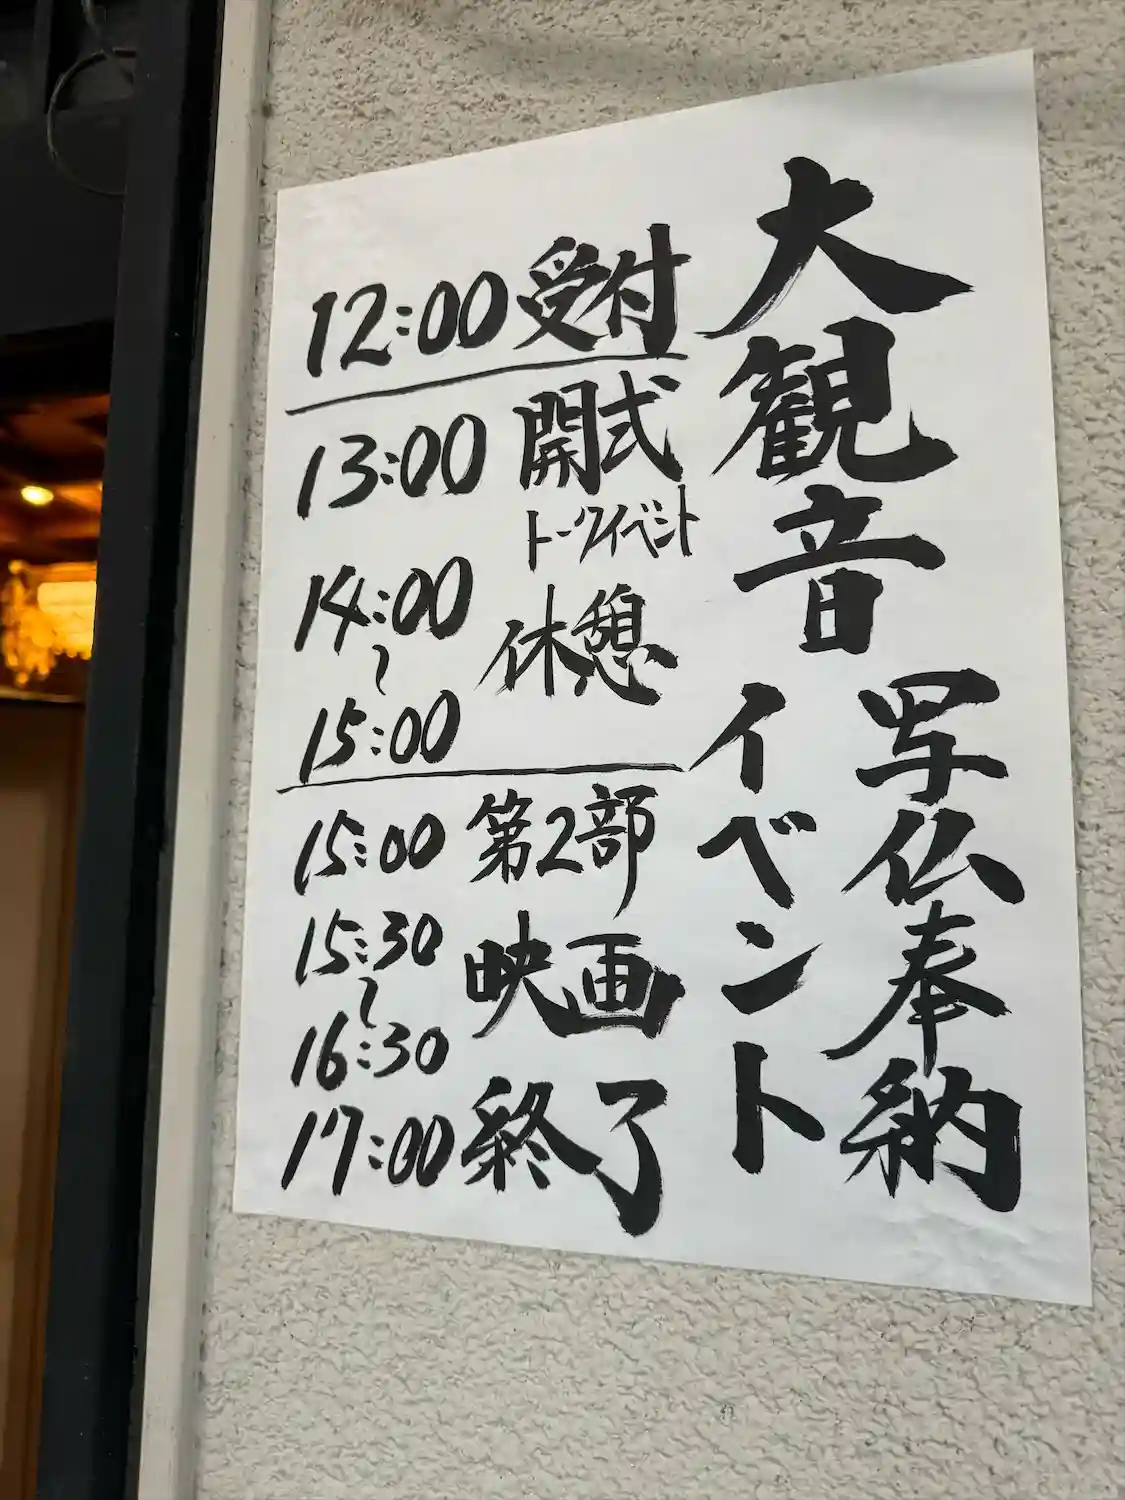 大観音
写仏奉納
イベント
12:00 受付
13:00 開式
トークイベント
14:00
〜
15:00
休憩
15:00 第2部
15:30
〜
16:30
映画
17:00 終了